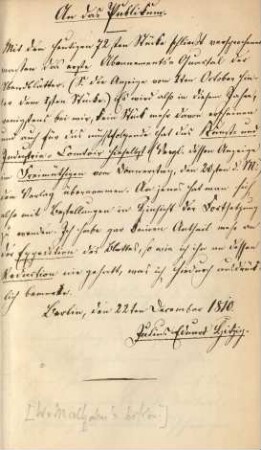 An das Publikum.
Mit dem heutigen 72sten Stücke schließt versprochener
maaßen das erste Abonnements-Quartal der
Abendblätter. (S. die Anzeige vom October hin-
ter dem Stücke) Es wird also in diesem Jahre,
wenigstens bei mir, kein Stück mehr davon erscheinen
und auch für das nächstfolgende hat das Kunst- und
Industrie-Comtoir hieselbst (vergl. dessen Anzeige
im Freimüthigen vom Donnerstag, den 20sten d. M.)
den Verlag übernommen. An jenes hat man sich
also mit Bestellungen in Hinsicht der Fortsetzung
zu wenden. Ich habe gar keinen Antheil mehr an
der Expedition des Blattes, so wie ich ihn an dessen
Redaction nie gehabt, was ich hierdurch ausdrück-
lich bemerke.
Berlin, den 22ten December 1810.
Julius Eduard Hitzig.